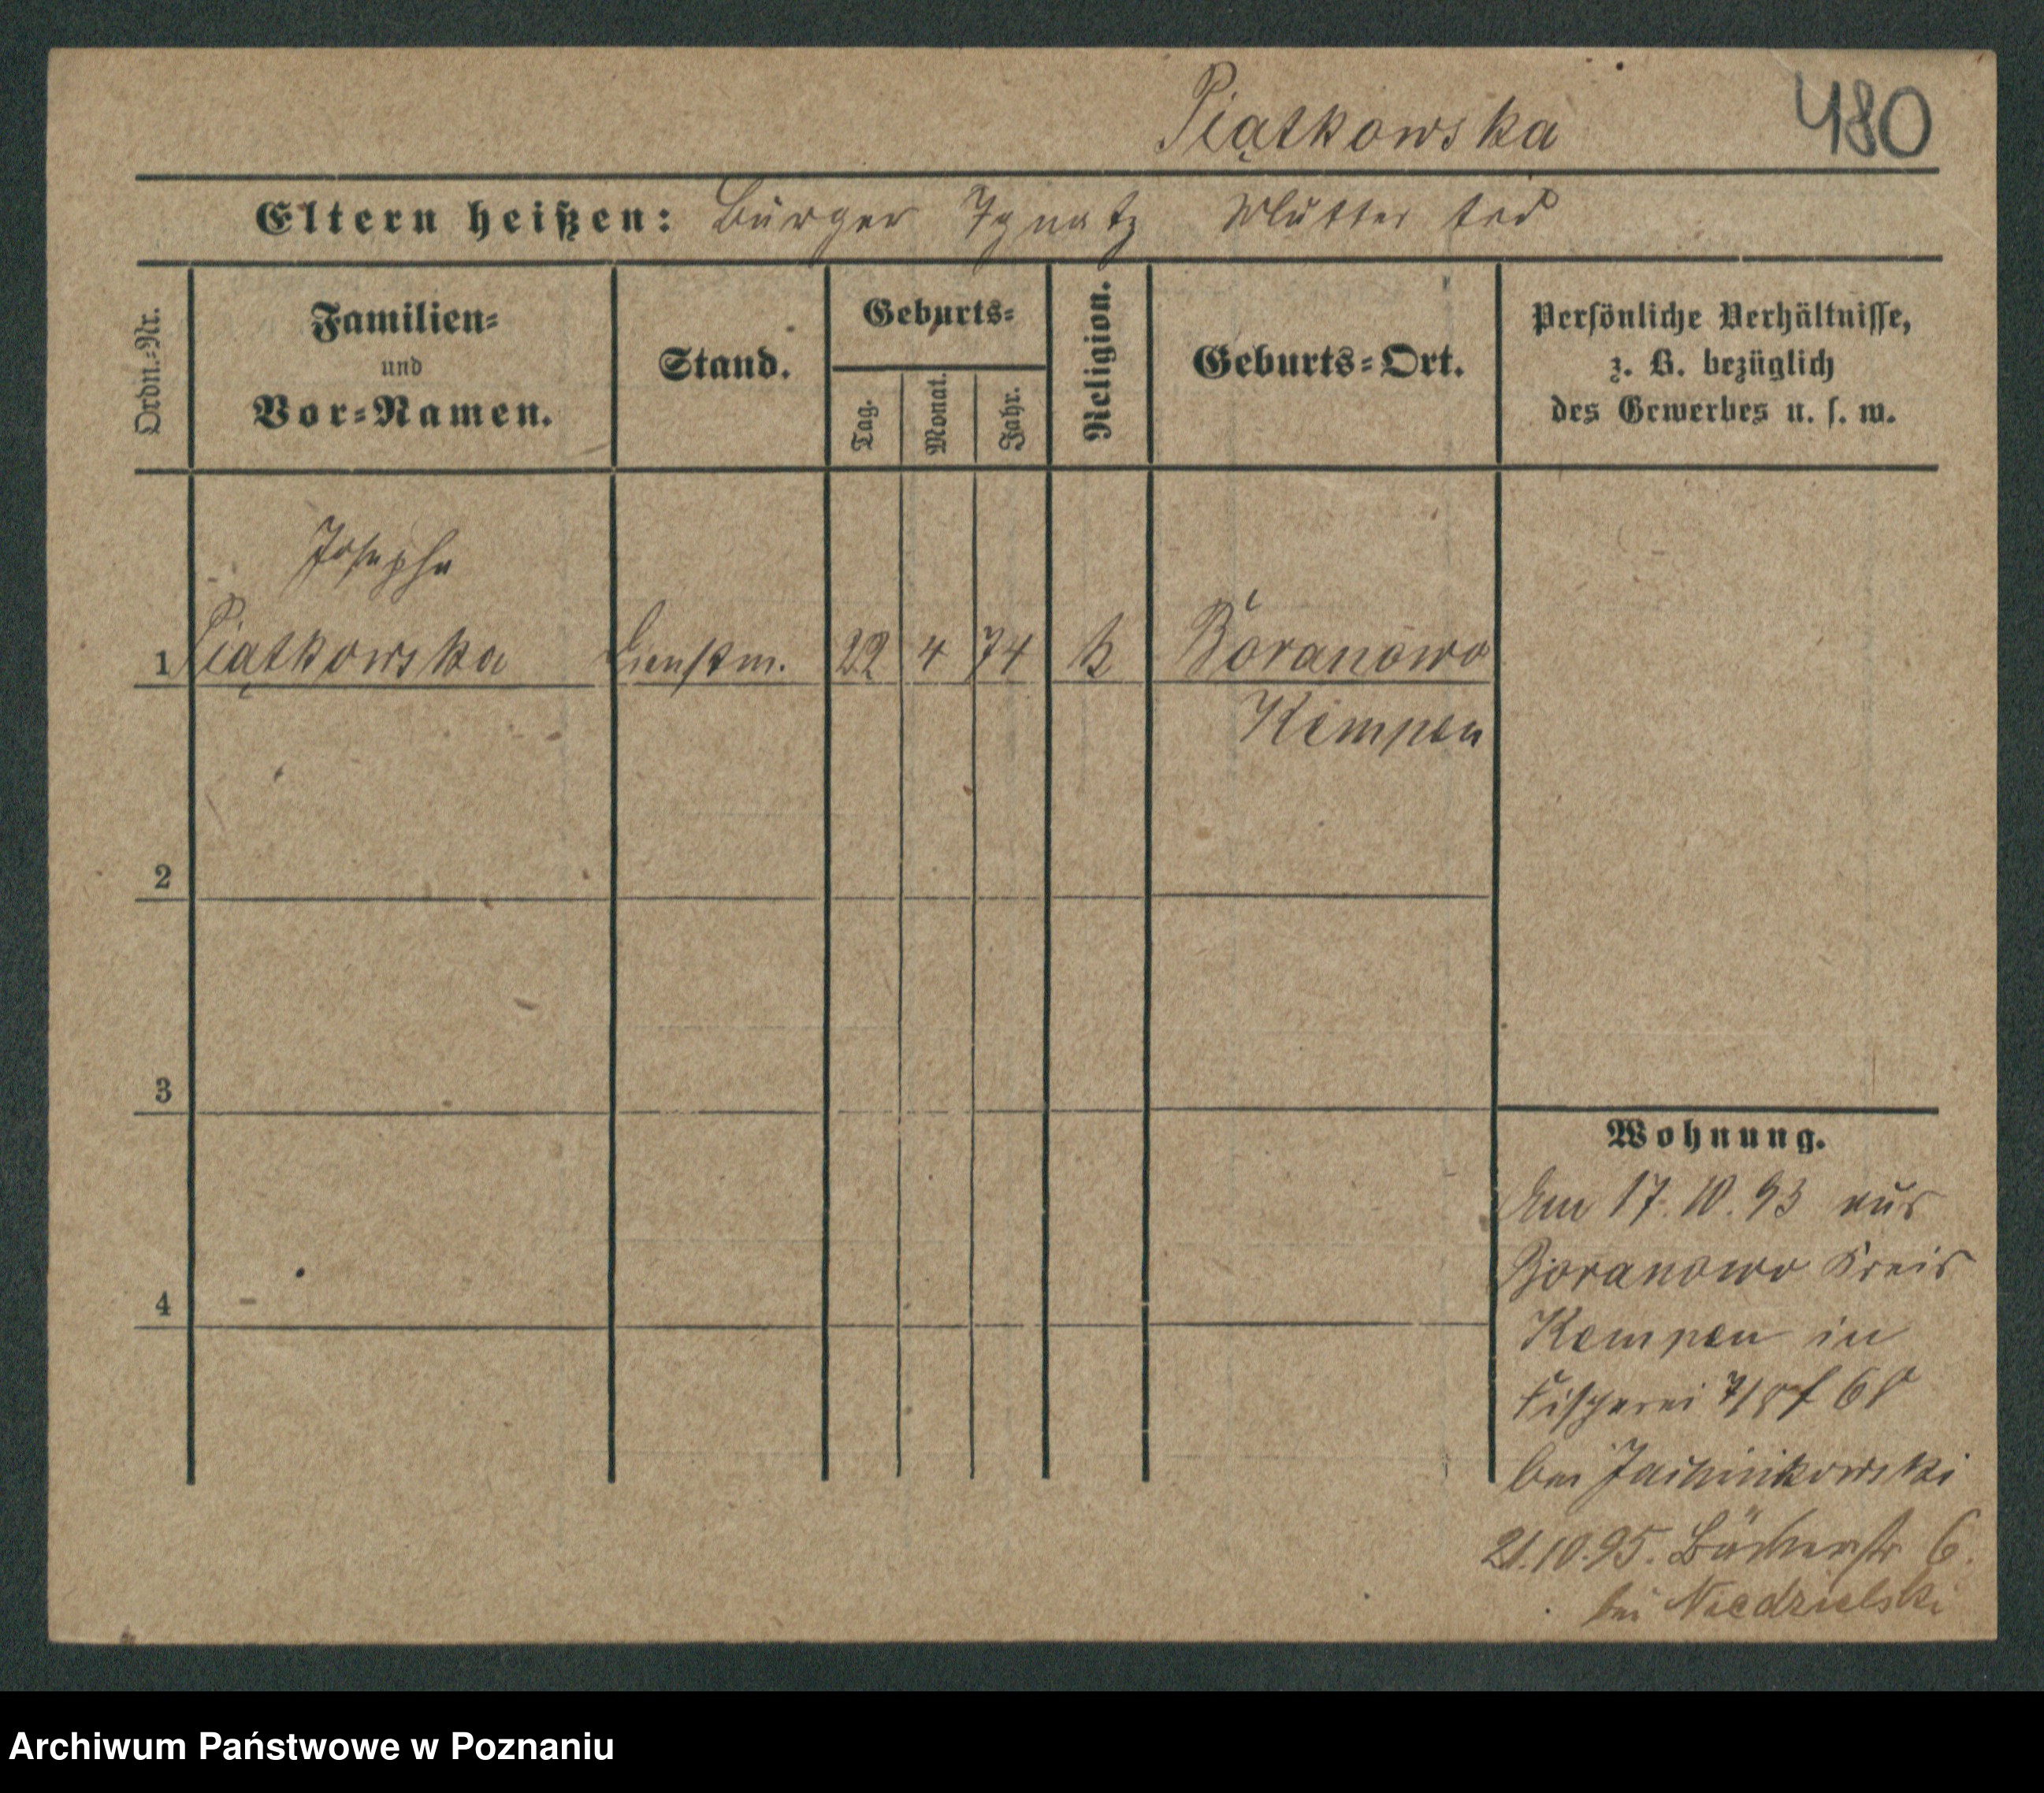 Piątkowska 480
Eltern heißen: Bürger Ignatz Mutter tod
Ordn.-Nr.
Familien-
und
Vor-Namen.
Stand.
Geburts-
Tag.
Monat.
Jahr.
Religion.
Geburts-Ort.
Persönliche Verhältnisse,
z. B. bezüglich
des Gewerbes u. s. w.
Josepha
1 Piątkowska Dienstm. 22 4 74 k Boranowo
Kempen
2
3
4
Wohnung.
Am 17.10.93 aus
Boranowo Kreis
Kempen in
Fischerei 7/8
bei
21.10.95. Bäckerstr 6.
bei Niedzielski
Archiwum Państwowe w Poznaniu